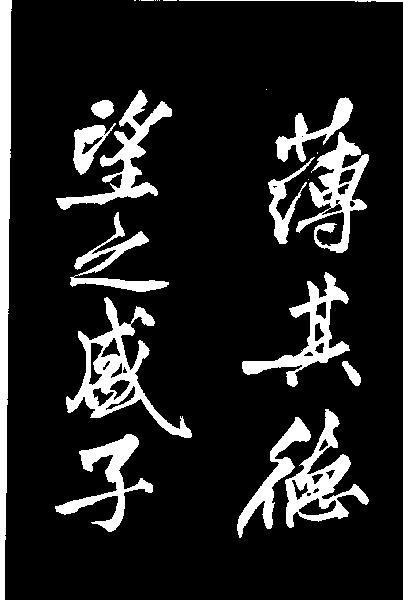 薄其德
望之感子